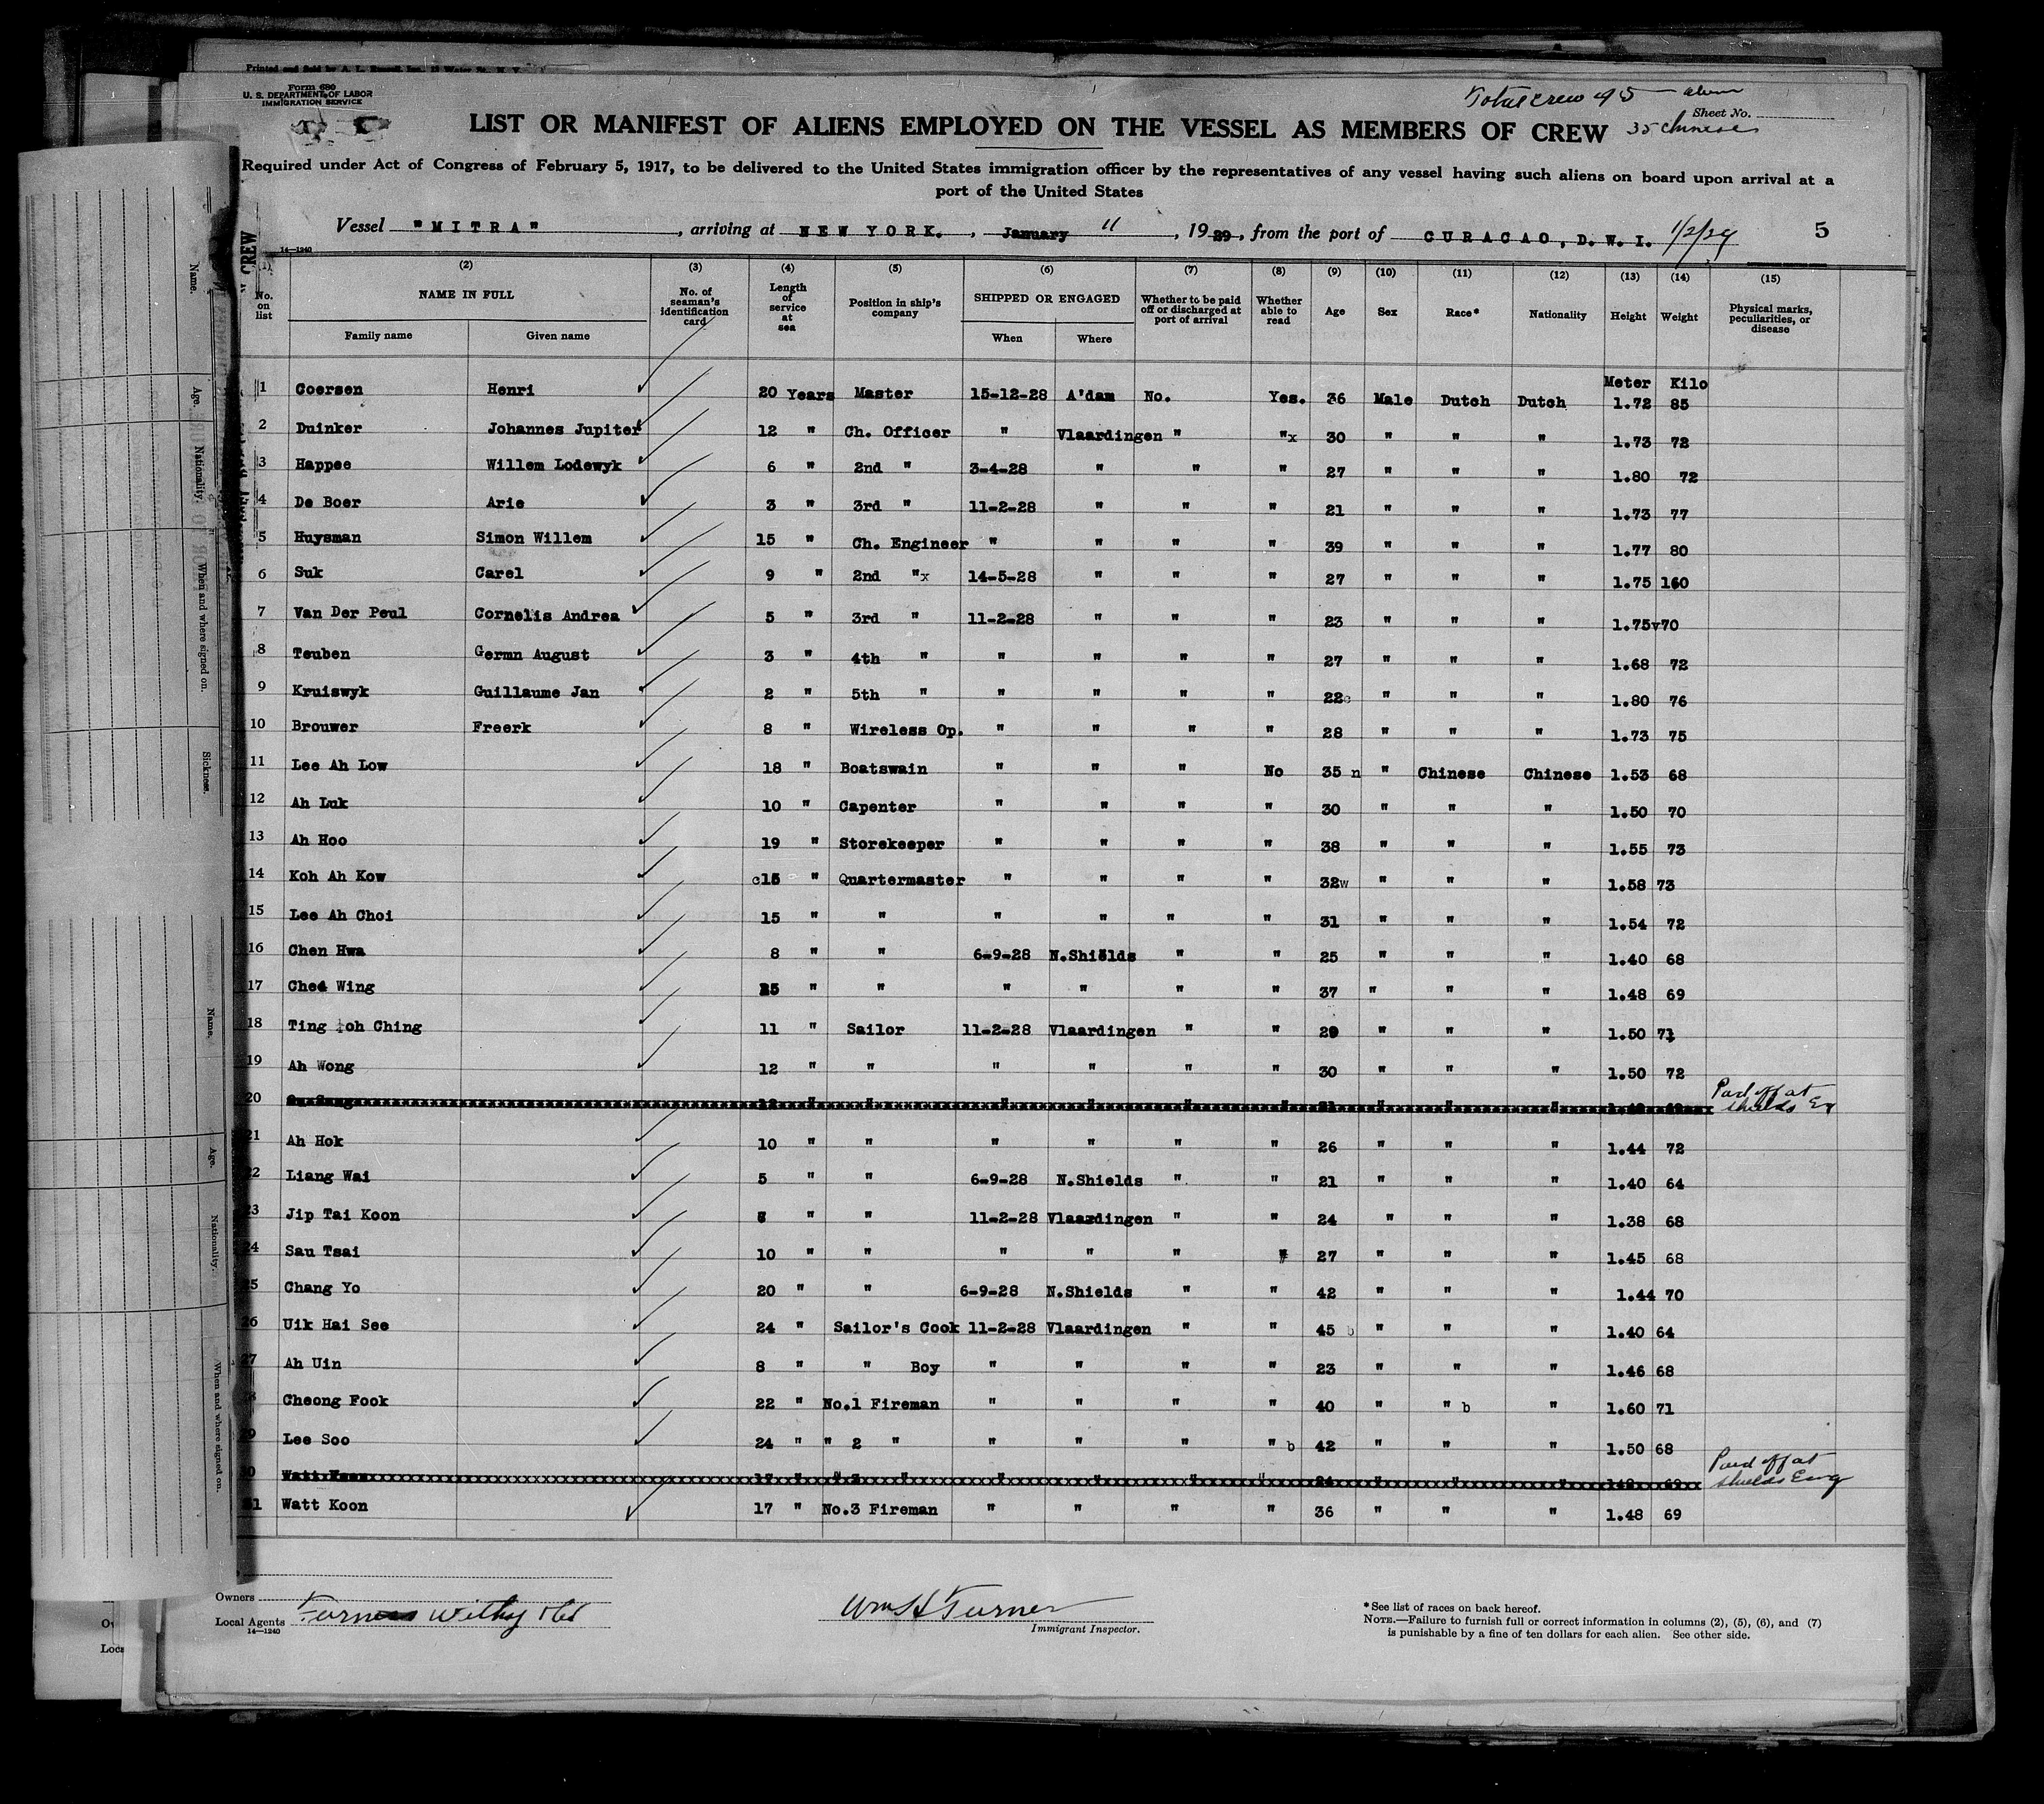 Form 680
U. S. DEPARTMENT OF LABOR
IMMIGRATION SERVICE
Total crew 45 alien
Sheet No.
35 Chinese
LIST OR MANIFEST OF ALIENS EMPLOYED ON THE VESSEL AS MEMBERS OF CREW
Required under Act of Congress of February 5, 1917, to be delivered to the United States immigration officer by the representatives of any vessel having such aliens on board upon arrival at a
port of the United States
Vessel "MITRA", arriving at NEW YORK., January 11, 1929, from the port of CURACAO, D.W.I. 1/2/29 5
14—1240
(1) (2) (3) (4) (5) (6) (7) (8) (9) (10) (11) (12) (13) (14) (15)
No. on list NAME IN FULL Family name Given name No. of seaman's identification card Length of service at sea Position in ship's company SHIPPED OR ENGAGED When Where Whether to be paid off or discharged at port of arrival Whether able to read Age Sex Race* Nationality Height Weight Physical marks, peculiarities, or disease
Meter Kilo
1 Coersen Henri 20 Years Master 15-12-28 A'dam No. Yes. 36 Male Dutch Dutch 1.72 85
2 Duinker Johannes Jupiter 12 " Ch. Officer " Vlaardingen " "x 30 " " " 1.73 72
3 Happee Willem Lodewyk 6 " 2nd " 3-4-28 " " " 27 " " " 1.80 72
4 De Boer Arie 3 " 3rd " 11-2-28 " " " 21 " " " 1.73 77
5 Huysman Simon Willem 15 " Ch. Engineer " " " " 39 " " " 1.77 80
6 Suk Carel 9 " 2nd "x 14-5-28 " " " 27 " " " 1.75 160
7 Van Der Peul Cornelis Andrea 5 " 3rd " 11-2-28 " " " 23 " " " 1.75v70
8 Teuben Germn August 3 " 4th " " " " " 27 " " " 1.68 72
9 Kruiswyk Guillaume Jan 2 " 5th " " " " " 22c " " " 1.80 76
10 Brouwer Freerk 8 " Wireless Op. " " " " 28 " " " 1.73 75
11 Lee Ah Low 18 " Boatswain " " " No 35 n " Chinese Chinese 1.53 68
12 Ah Luk 10 " Capenter " " " " 30 " " " 1.50 70
13 Ah Hoo 19 " Storekeeper " " " " 38 " " " 1.55 73
14 Koh Ah Kow c15 " Quartermaster " " " " 32w " " " 1.58 73
15 Lee Ah Choi 15 " " " " " " 31 " " " 1.54 72
16 Chen Hwa 8 " " 6-9-28 N.Shields " " 25 " " " 1.40 68
17 Ched Wing " " " " " " 37 " " " 1.48 69
18 Ting oh Ching 11 " Sailor 11-2-28 Vlaardingen " " 29 " " " 1.50 71
19 Ah Wong 12 " " " " " " 30 " " " 1.50 72
20 12 " " " " " " " " " Paid off at
shields Eng
21 Ah Hok 10 " " " " " " 26 " " " 1.44 72
22 Liang Wai 5 " " 6-9-28 N.Shields " " 21 " " " 1.40 64
23 Jip Tai Koon " " 11-2-28 Vlaardingen " " 24 " " " 1.38 68
24 Sau Tsai 10 " " " " " " 27 " " " 1.45 68
25 Chang Yo 20 " " 6-9-28 N.Shields " " 42 " " " 1.44 70
26 Uik Hai See 24 " Sailor's Cook 11-2-28 Vlaardingen " " 45 b " " " 1.40 64
27 Ah Uin 8 " " Boy " " " " 23 " " " 1.46 68
28 Cheong Fook 22 " No.1 Fireman " " " " 40 " " b " 1.60 71
29 Lee Soo 24 " " 2 " " " " " b 42 " " " 1.50 68
30 17 " " 3 " " " " " 24 " " " 148 69 Paid off at
shields Eng
31 Watt Koon 17 " No.3 Fireman " " " " 36 " " " 1.48 69
Owners
Local Agents Furness Withy & Co Ltd
14—1240
Wm H Turner
Immigrant Inspector.
*See list of races on back hereof.
NOTE.—Failure to furnish full or correct information in columns (2), (5), (6), and (7)
is punishable by a fine of ten dollars for each alien. See other side.
Name.
Age.
Nationality.
When and where signed on.
Sickness.
Name.
Age.
Nationality.
When and where signed on.
CREW